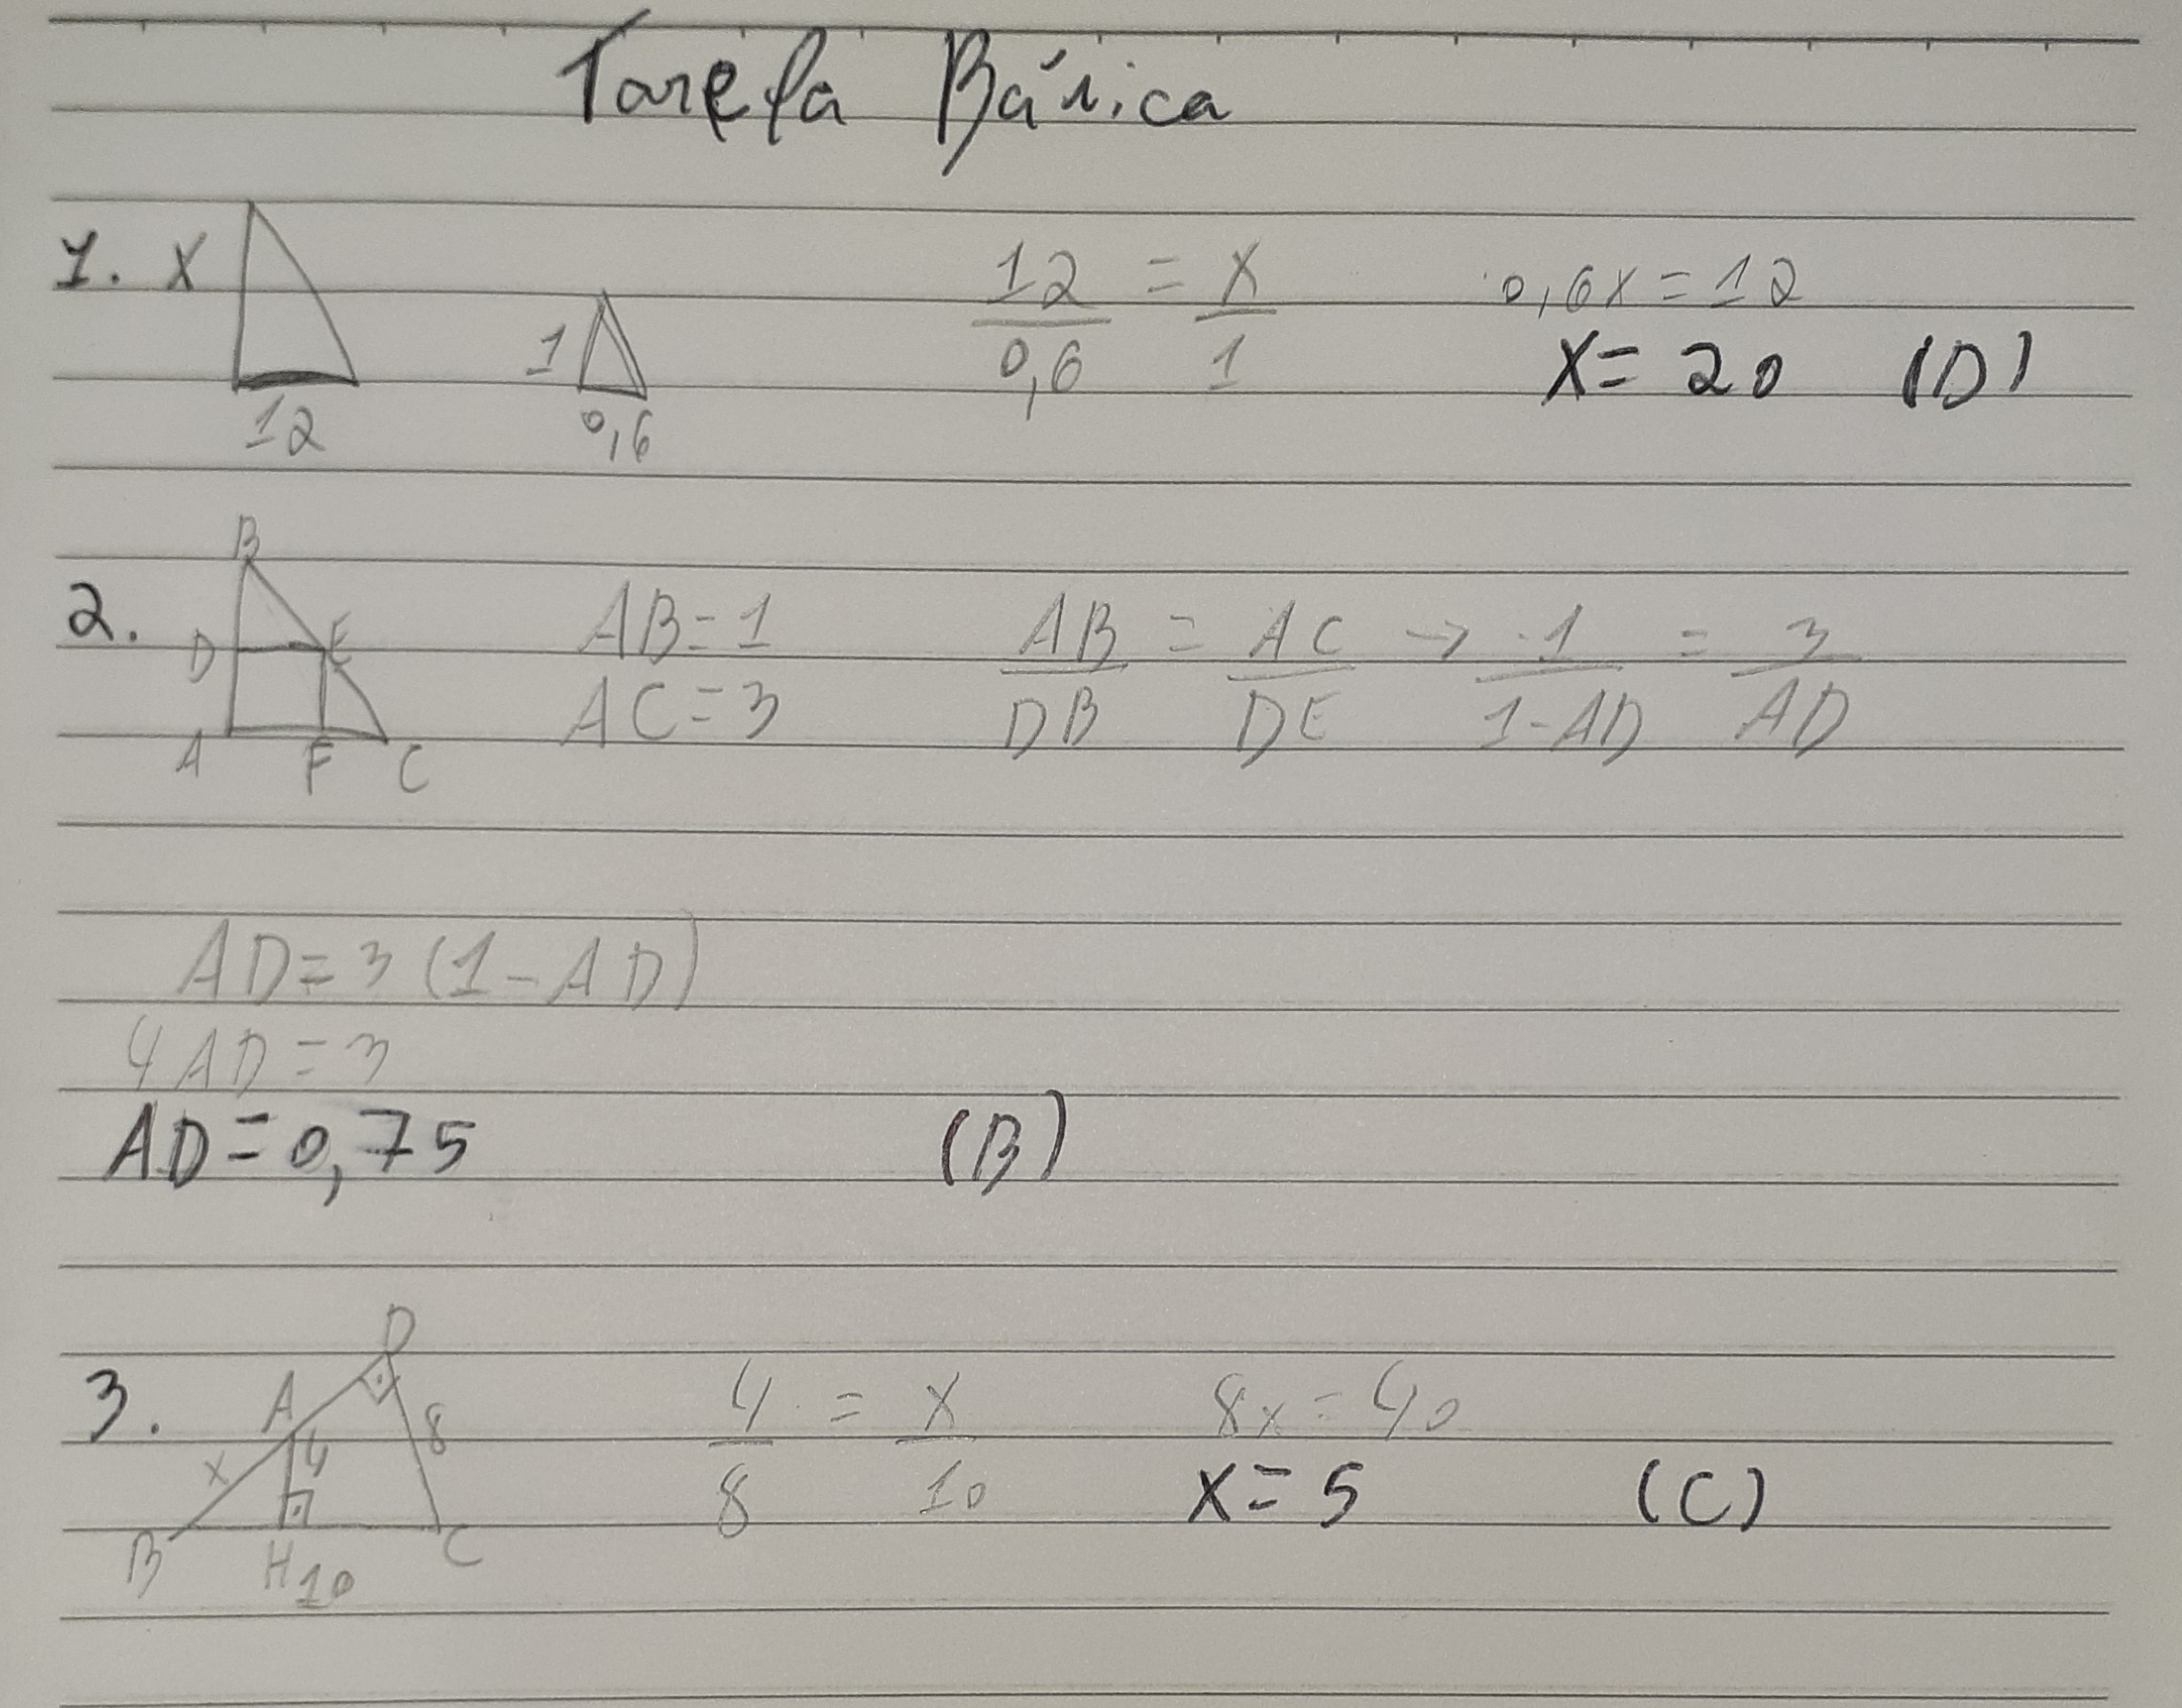 Tarefa Básica
1. X 12 1 0,6 12/0,6 = X/1 0,6X = 12
X = 20 (D)
2. B D E A F C AB = 1 AB/DB = AC/DE → 1/1-AD = 3/AD
AC = 3
AD = 3 (1 - AD)
4AD = 3
AD = 0,75 (B)
3. D A 8 X 4 B H 10 C 4/8 = X/10 8x = 40
X = 5 (C)